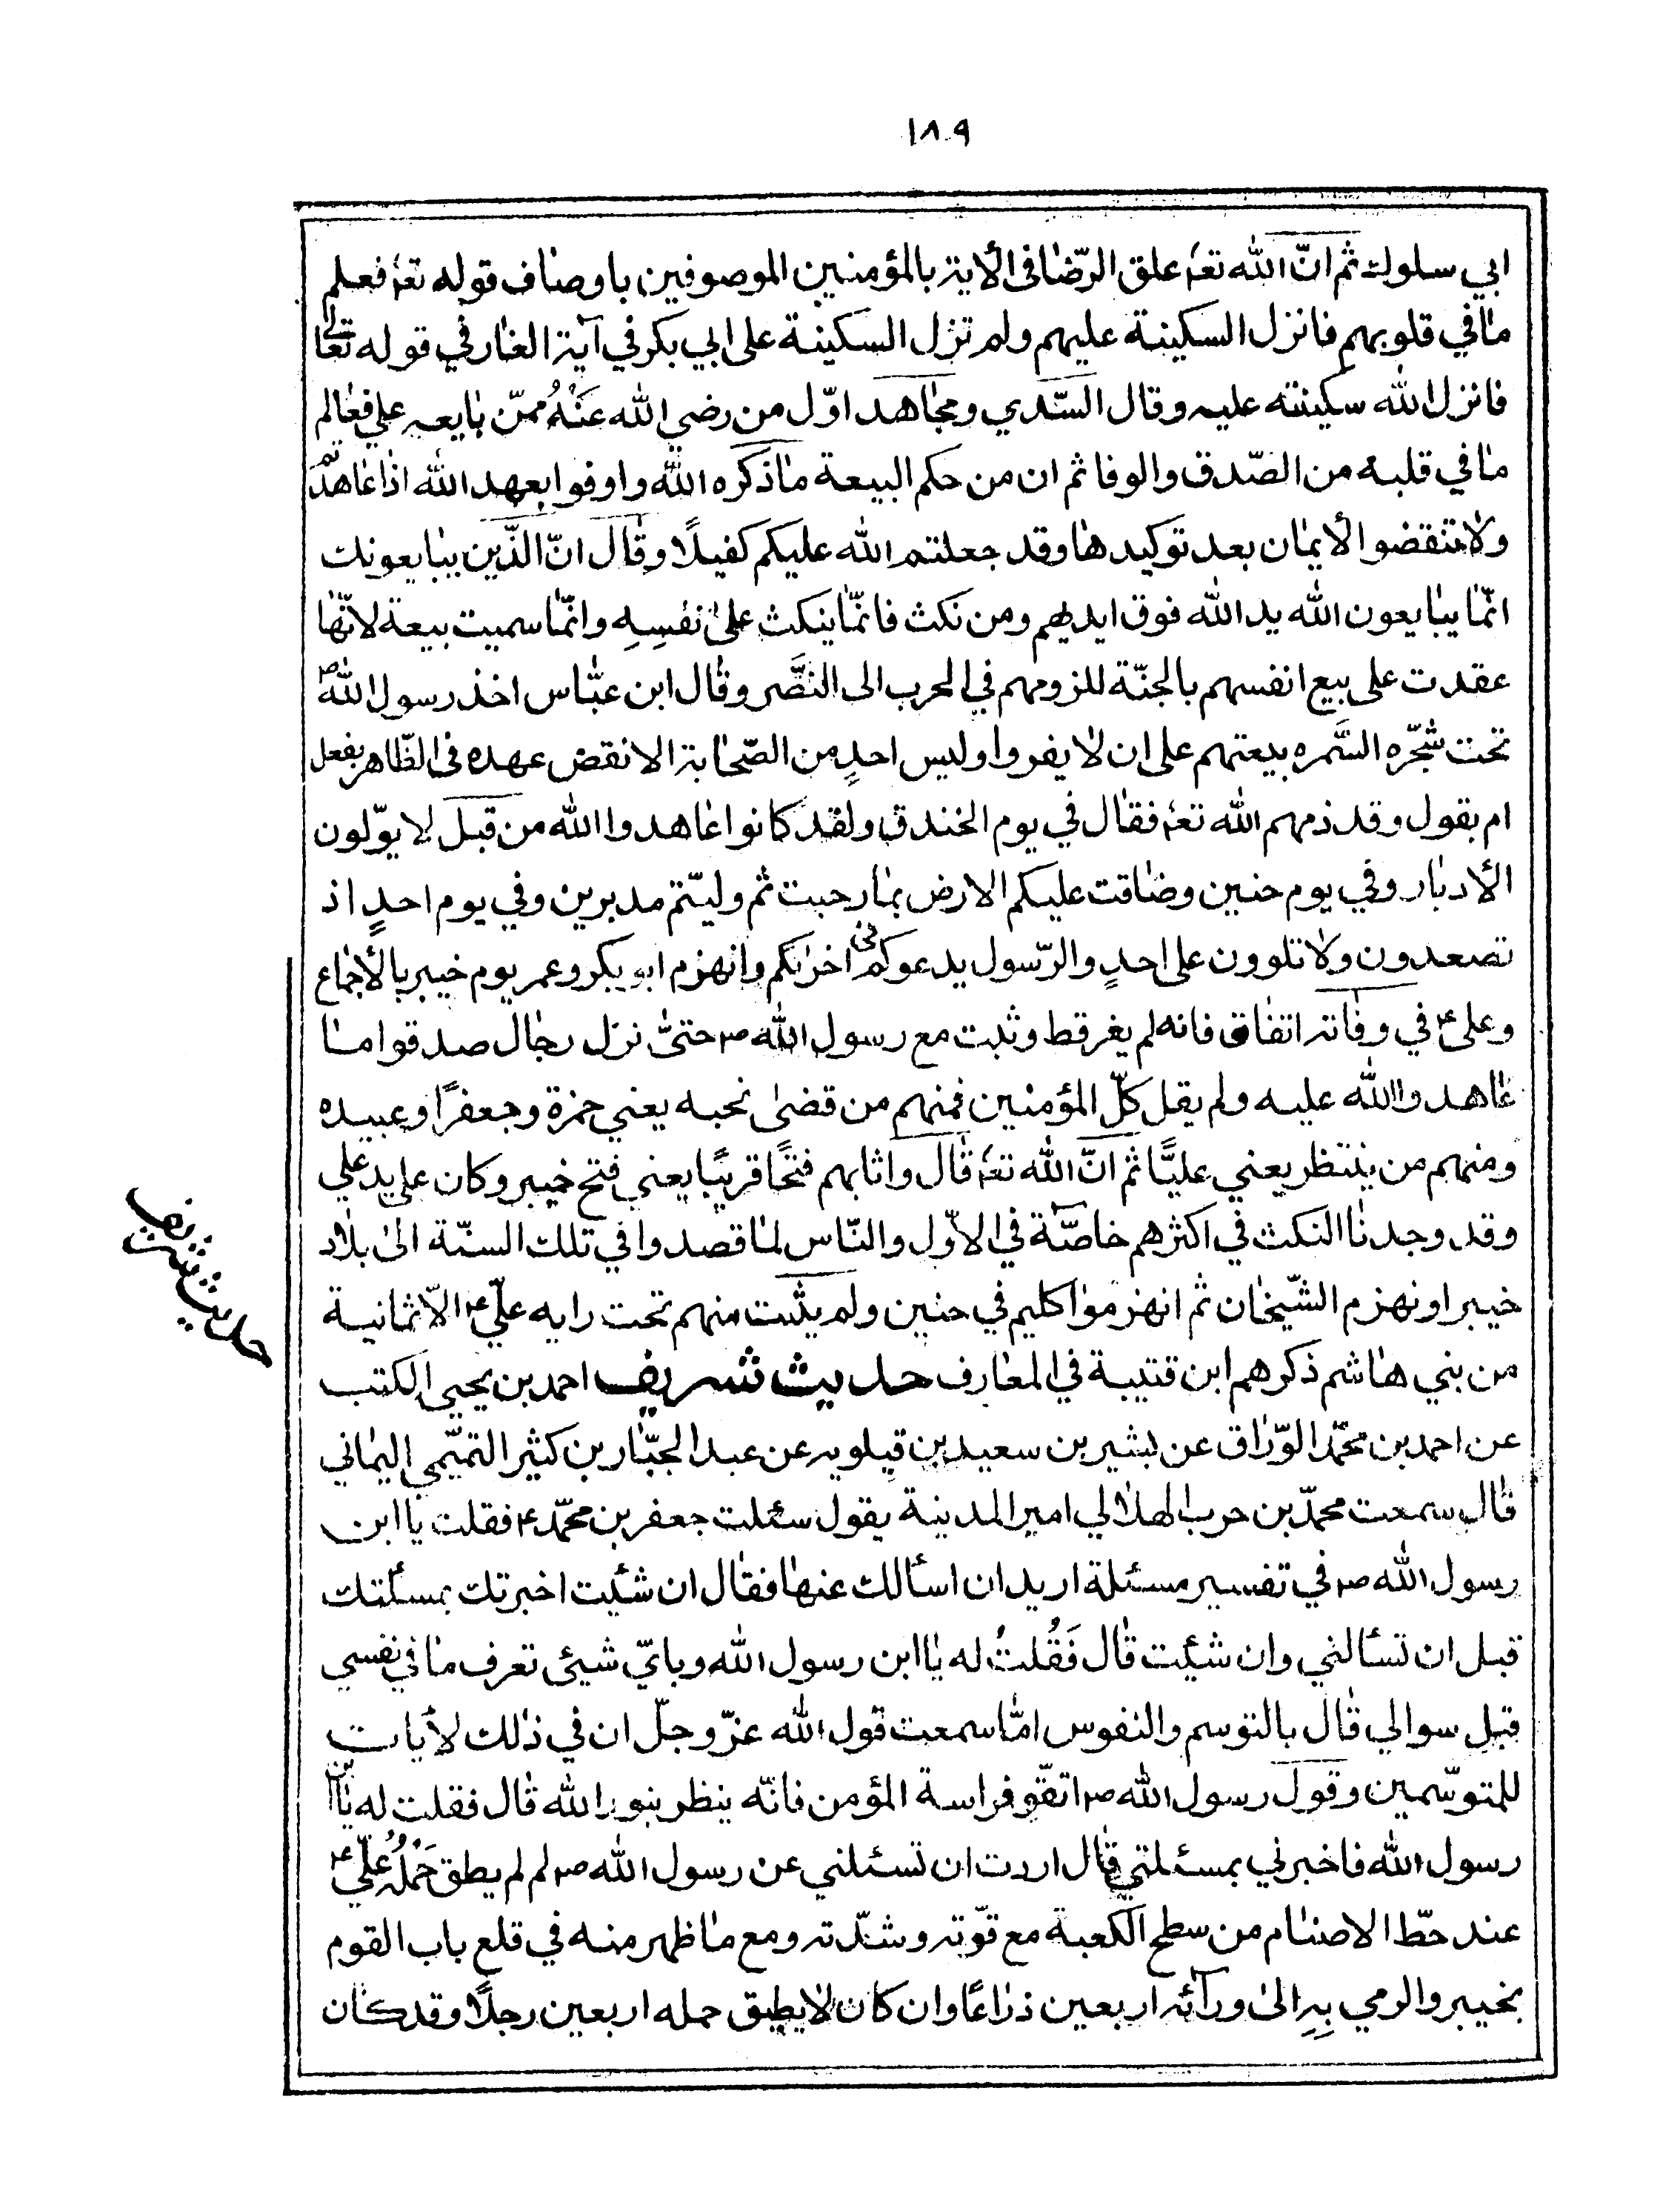 ١٨٩
ابي سلول ثم انّ الله تعا علق الرّضا في الأية بالمؤمنين الموصوفين باوصاف قوله تعا فعلم
ما في قلوبهم فانزل السكينة عليهم ولم تزل السكينة على ابي بكر في آية الغار في قوله تعالى
فانزل الله سكينته عليه وقال السّدي ومجاهد اوّل من رضي الله عَنْهُ ممّن بايعه علي فعالم
ما في قلبه من الصّدق والوفا ثم ان من حكم البيعة ما ذكره الله واوفوا بعهد الله اذا عاهدتم
ولا تنقضوا الأيمان بعد توكيدها وقد جعلتم الله عليكم كفيلًا وقال انّ الذّين يبايعونك
انّما يبايعون الله يد الله فوق ايديهم ومن نكث فانّما ينكث على نفسِهِ وانّما سميت بيعة لانّها
عقدت على بيع انفسهم بالجنّة للزومهم في الحرب الى النصَّر وقال ابن عبّاس اخذ رسول الله ص
تحت شجّره السَّمره بيعتهم على ان لا يفروا وليس احدٍ من الصّحابة الا نقض عهده في الظّاهر بفعل
ام بقول وقد ذمهم الله تعا فقال في يوم الخندق ولقد كانوا عاهدوا الله من قبل لا يوّلون
الأدبار وفي يوم حنين وضاقت عليكم الارض بما رحبت ثم وليّتم مدبرين وفي يوم احدٍ اذ
تصعدون ولا تلوون على احدٍ والرّسول يدعوكم في اخراكم وانهزم ابو بكر وعمر يوم خيبر بالأجماع
وعلى ع في وفاته اتفاق فانه لم يفر قط وثبت مع رسول الله ص حتىّ نزل رجال صدقوا ما
عاهدوا الله عليه ولم يقل كلّ المؤمنين فمنهم من قضى نحبه يعني حمزة وجعفرًا وعبيده
ومنهم من ينتظر يعني عليًّا ثم انّ الله تعا قال واثابهم فتحًا قريبًا يعني فتح خيبر وكان على يد علي
وقد وجدنا النكث في اكثرهم خاصّة في الاوّل والنّاس لما قصدوا في تلك السنّة الى بلاد
خيبر اونهزم الشّيخان ثم انهزموا كليم في حنين ولم يثبت منهم تحت رايه عليّ ع الاّ ثمانية
من بني هاشم ذكرهم ابن قتيبة في المعارف حديث شريف احمد بن يحيى الكتب
عن احمد بن محمّد الورّاق عن بشير بن سعيد بن قيلويه عن عبد الجبّار بن كثير التميّمي اليماني
قال سمعت محمّد بن حرب الهلالي امير المدينة يقول سئلت جعفر بن محمّد ع فقلت يا ابن
رسول الله ص في تفسير مسئلة اريد ان اسألك عنها فقال ان شئيت اخبرتك بمسئلتك
قبل ان تسألني وان شئيت قال فَقُلتُ له يا ابن رسول الله وباىّ شيئ تعرف ما في نفسي
قبل سوالي قال بالتوسم والنفوس امّا سمعت قول الله عزّ وجلّ ان في ذلك لأيات
للمتوسّمين وقول رسول الله ص اتقّو فراسة المؤمن فانّه ينظر بنور الله قال فقلت له يا ابن
رسول الله فاخبرني بمسئلتي قال اردت ان تسئلني عن رسول الله ص لم لم يطق حَمْلُه عليّ ع
عند حطّ الاصنام من سطح الكعبة مع قوّته وشدّته ومع ما ظهر منه في قلع باب القوم
بخيبر والرمي بِهِ الى ورآئه اربعين ذراعًا وان كان لا يطيق حمله اربعين رجلًا وقد كان
حديث شريف